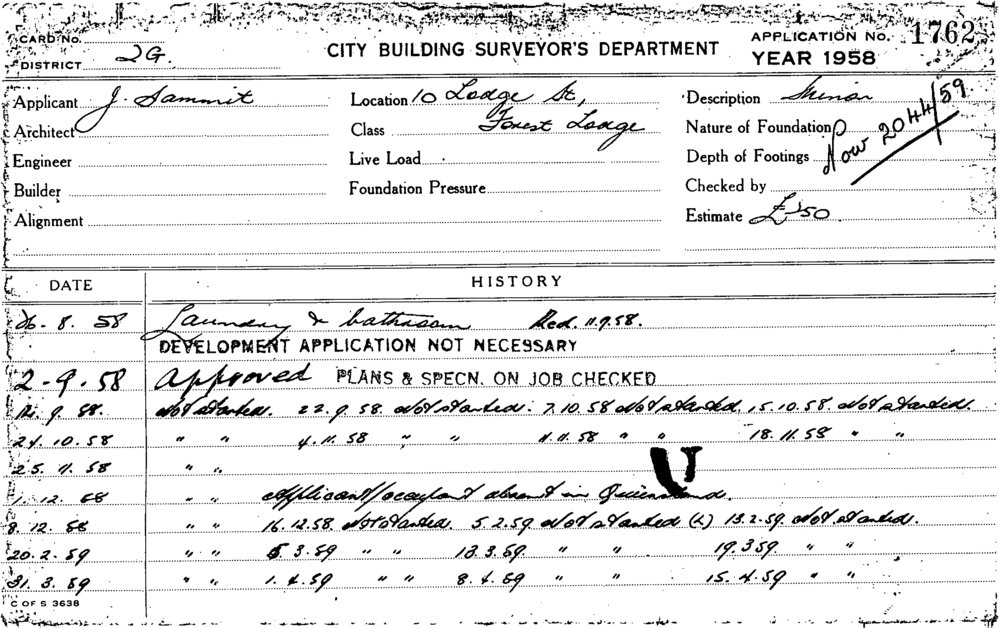 CARD No.
DISTRICT 2G.
CITY BUILDING SURVEYOR'S DEPARTMENT
APPLICATION No. 1762
YEAR 1958
Applicant J. Sammit Location 10 Lodge St, Description Minor
Architect Class Forest Lodge Nature of Foundation
Engineer Live Load Depth of Footings Now 2044/59
Builder Foundation Pressure Checked by
Alignment Estimate £150
DATE HISTORY
26. 8. 58 Laundry & bathroom Red. 11.9.58.
DEVELOPMENT APPLICATION NOT NECESSARY
2-9-58 Approved PLANS & SPECN. ON JOB CHECKED
12. 9. 58. Not started. 22.9.58 Not started. 7.10.58 Not started, 15.10.58. Not started.
24.10.58 " " 4.11.58 " " 11.11.58 " " 18.11.58 " "
25.11.58 " "
1.12.58 " " Applicant/occupant absent in Queensland.
8.12.58 " " 16.12.58. Not started. 5.2.59 Not started (L) 13.2.59. Not started.
20.2.59 " " 5.3.59 " " 13.3.59 " " 19.3.59 " "
31.3.59 " " 1.4.59 " " 8.4.59 " " 15.4.59 " "
C OF S 3638